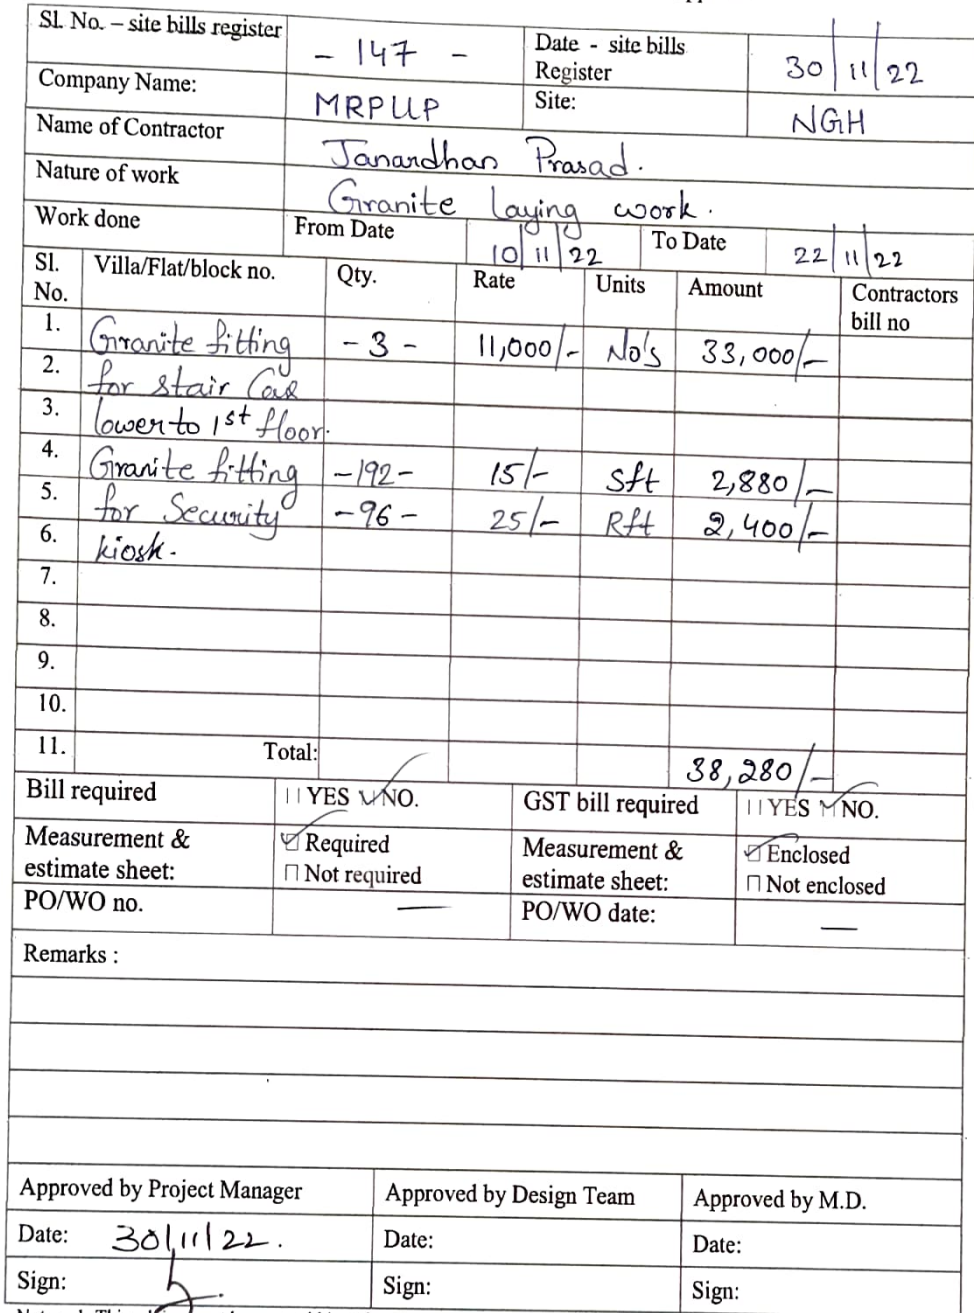 Sl. No. – site bills register - 147 - Date - site bills Register 30/11/22
Company Name: MRPLLP Site: NGH
Name of Contractor Janardhan Prasad.
Nature of work Granite laying work.
Work done From Date 10/11/22 To Date 22/11/22
Sl. No. Villa/Flat/block no. Qty. Rate Units Amount Contractors bill no
1. Granite fitting - 3 - 11,000/- No's 33,000/-
2. for stair Case
3. lower to 1st floor.
4. Granite fitting -192- 15/- Sft 2,880/-
5. for Security -96- 25/- Rft 2,400/-
6. kiosk.
7.
8.
9.
10.
11. Total: 38,280/-
Bill required YES NO. GST bill required YES NO.
Measurement & estimate sheet: Required Not required Measurement & estimate sheet: Enclosed Not enclosed
PO/WO no. — PO/WO date: —
Remarks :
Approved by Project Manager Approved by Design Team Approved by M.D.
Date: 30/11/22. Date: Date:
Sign: Sign: Sign: